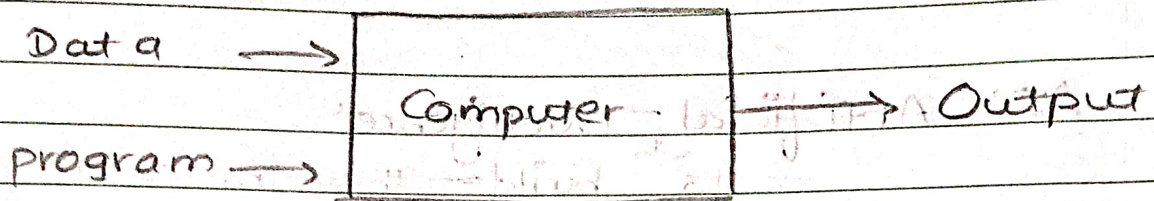 Data
Computer
Output
program